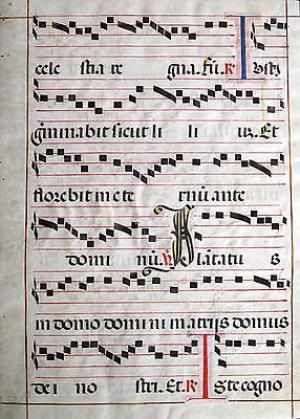 cele stia re gna. Eu. R Iustus
germinabit sicut li li um. Et
florebit in ete rnū. ante
domi nū. R Plātatu s
in domo domini in atriis domus
de i no stri. Et. R Iste cogno